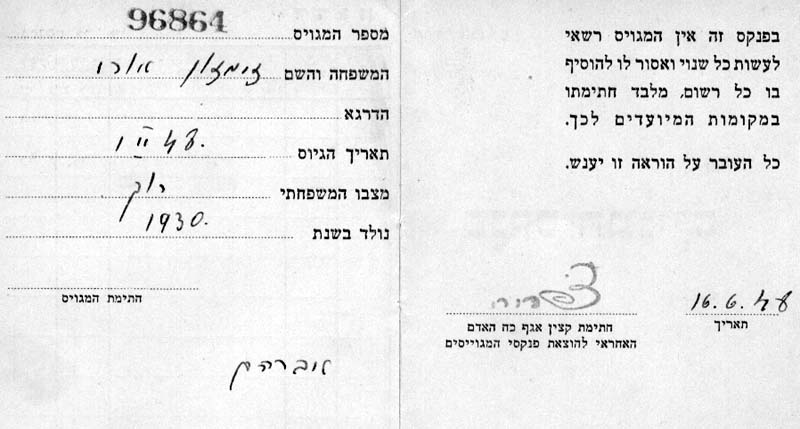 בפנקס זה אין המגויס רשאי
לעשות כל שנוי ואסור לו להוסיף
בו כל רשום, מלבד חתימתו
במקומות המיועדים לכך.
כל העובר על הוראה זו יענש.
16.6.48
תאריך
חתימת קצין אגף כח האדם
האחראי להוצאת פנקסי המגוייסים
מספר המגויס 96864
המשפחה והשם
הדרגא
תאריך הגיוס 1 II 48.
מצבו המשפחתי רוק
נולד בשנת 1930.
חתימת המגויס